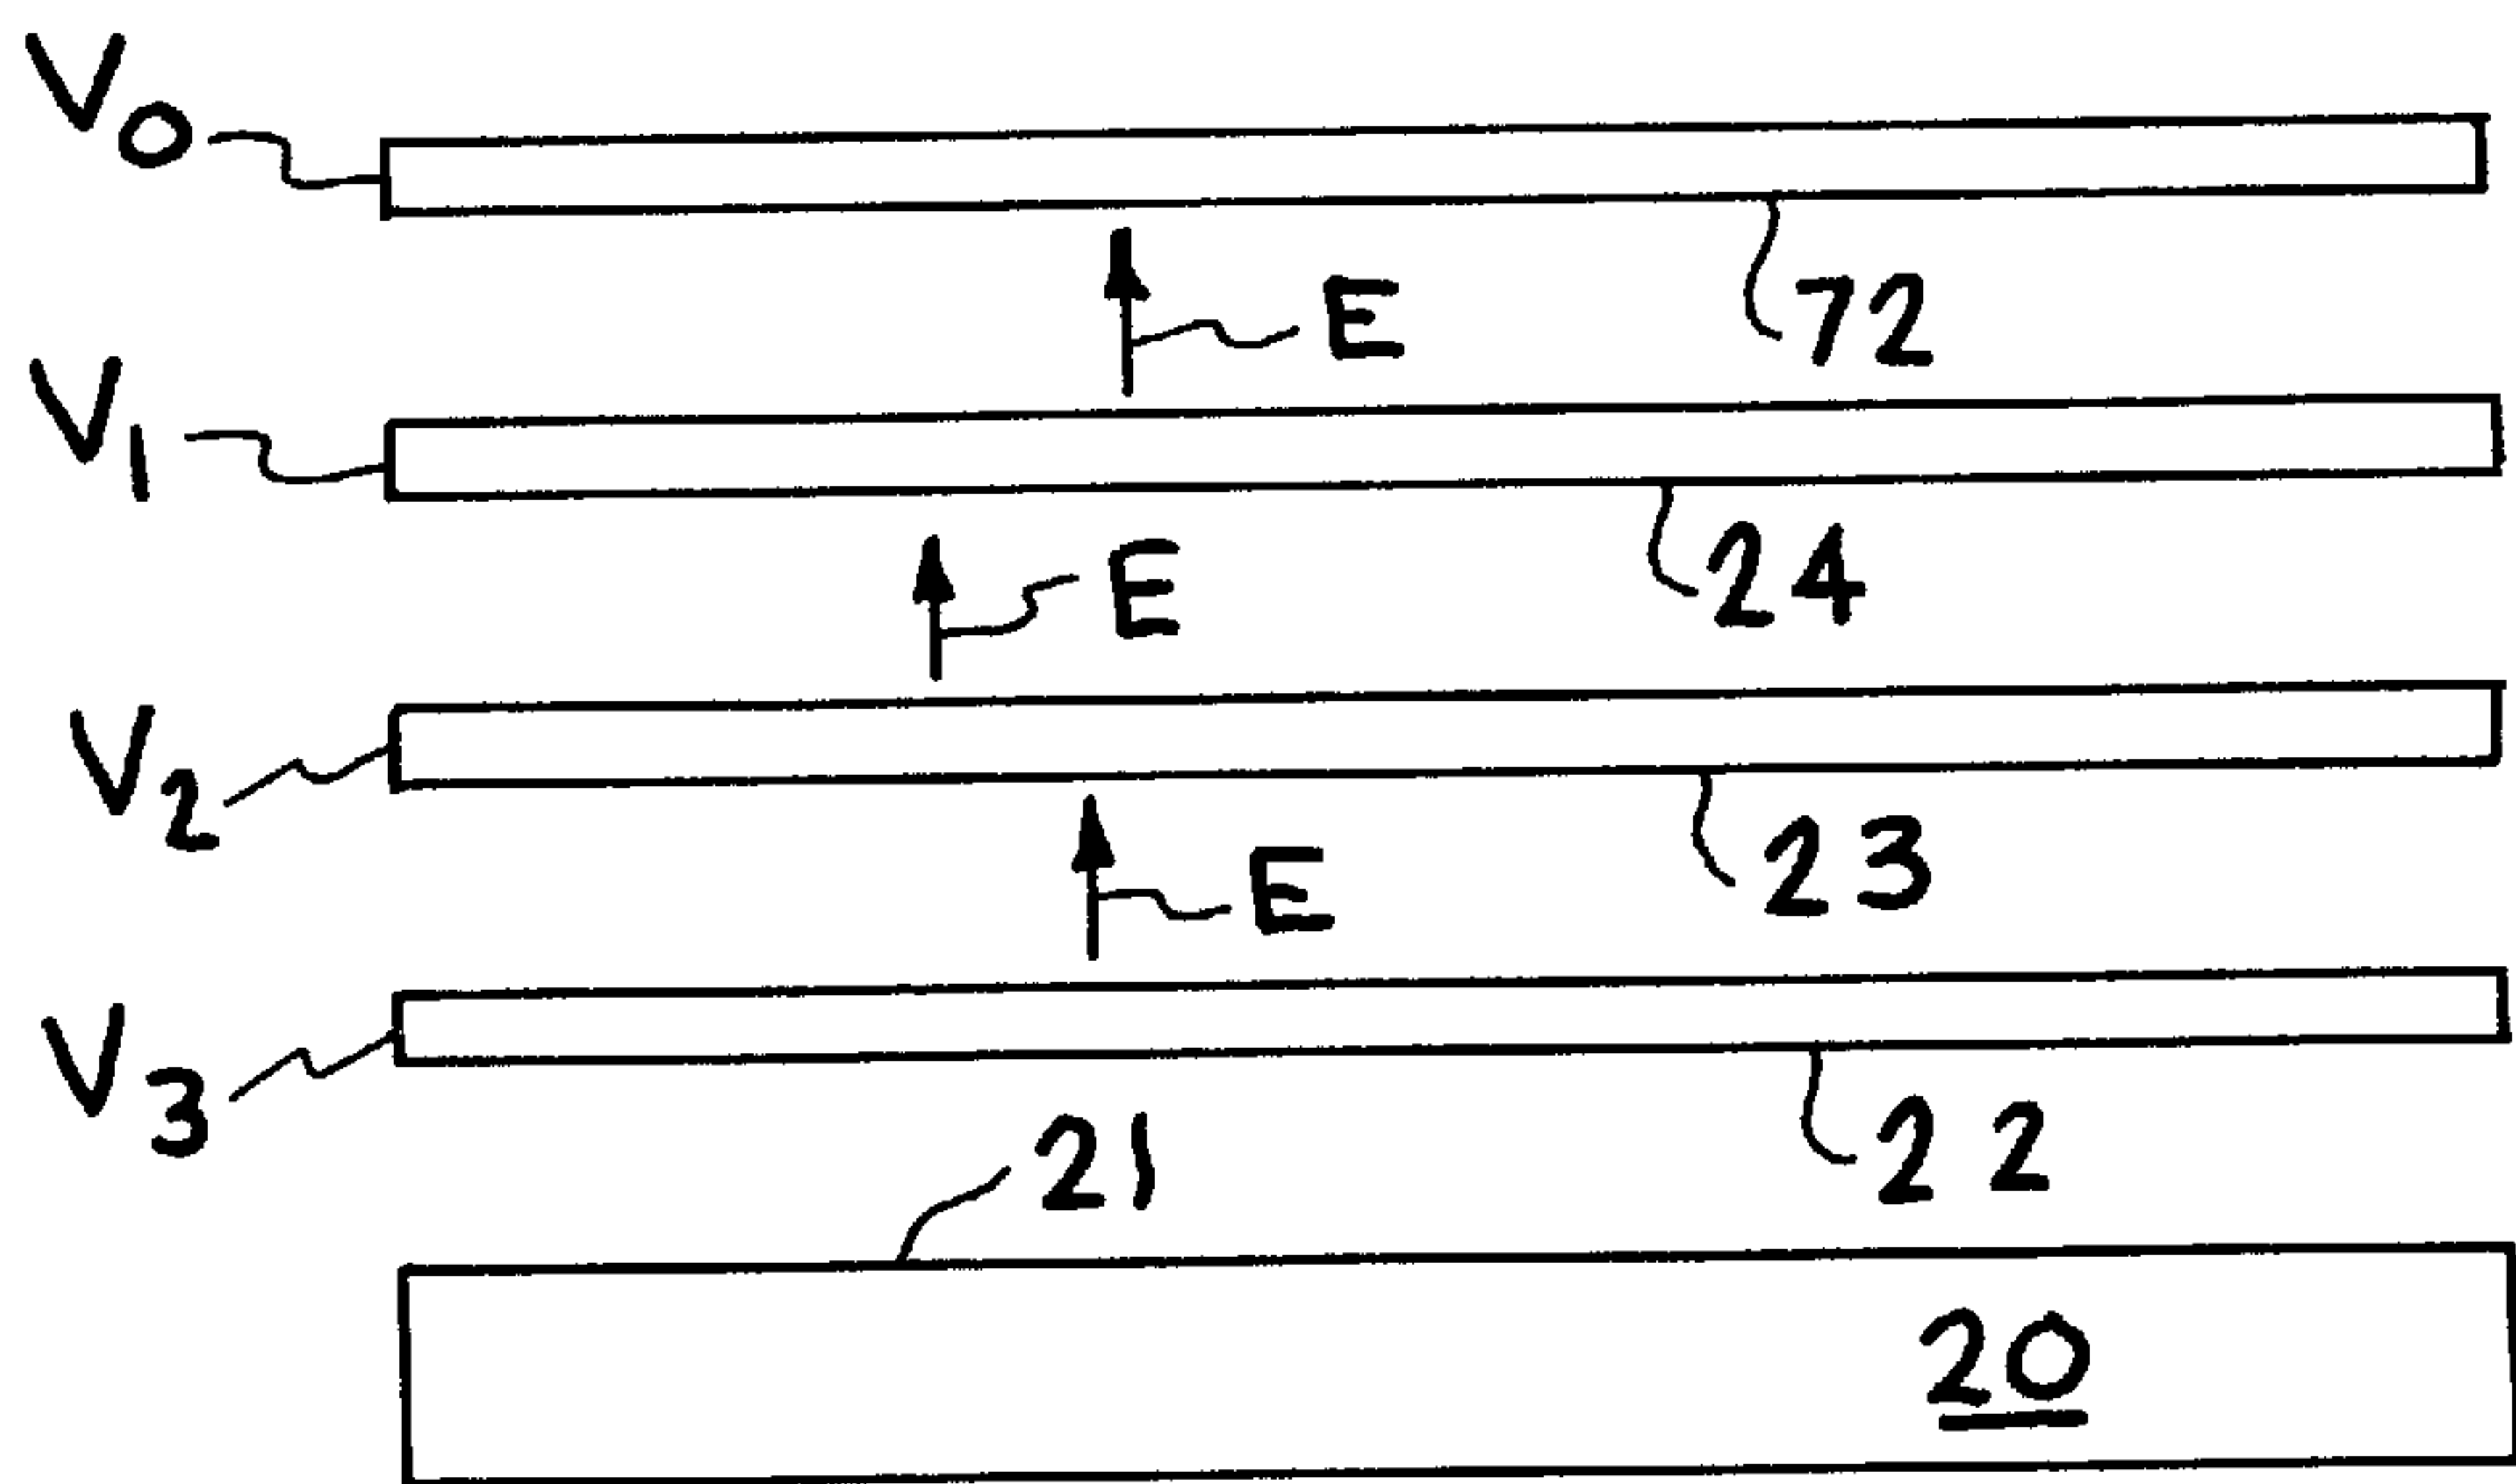 V0
E
72
V1
E
24
V2
E
23
V3
21
22
20